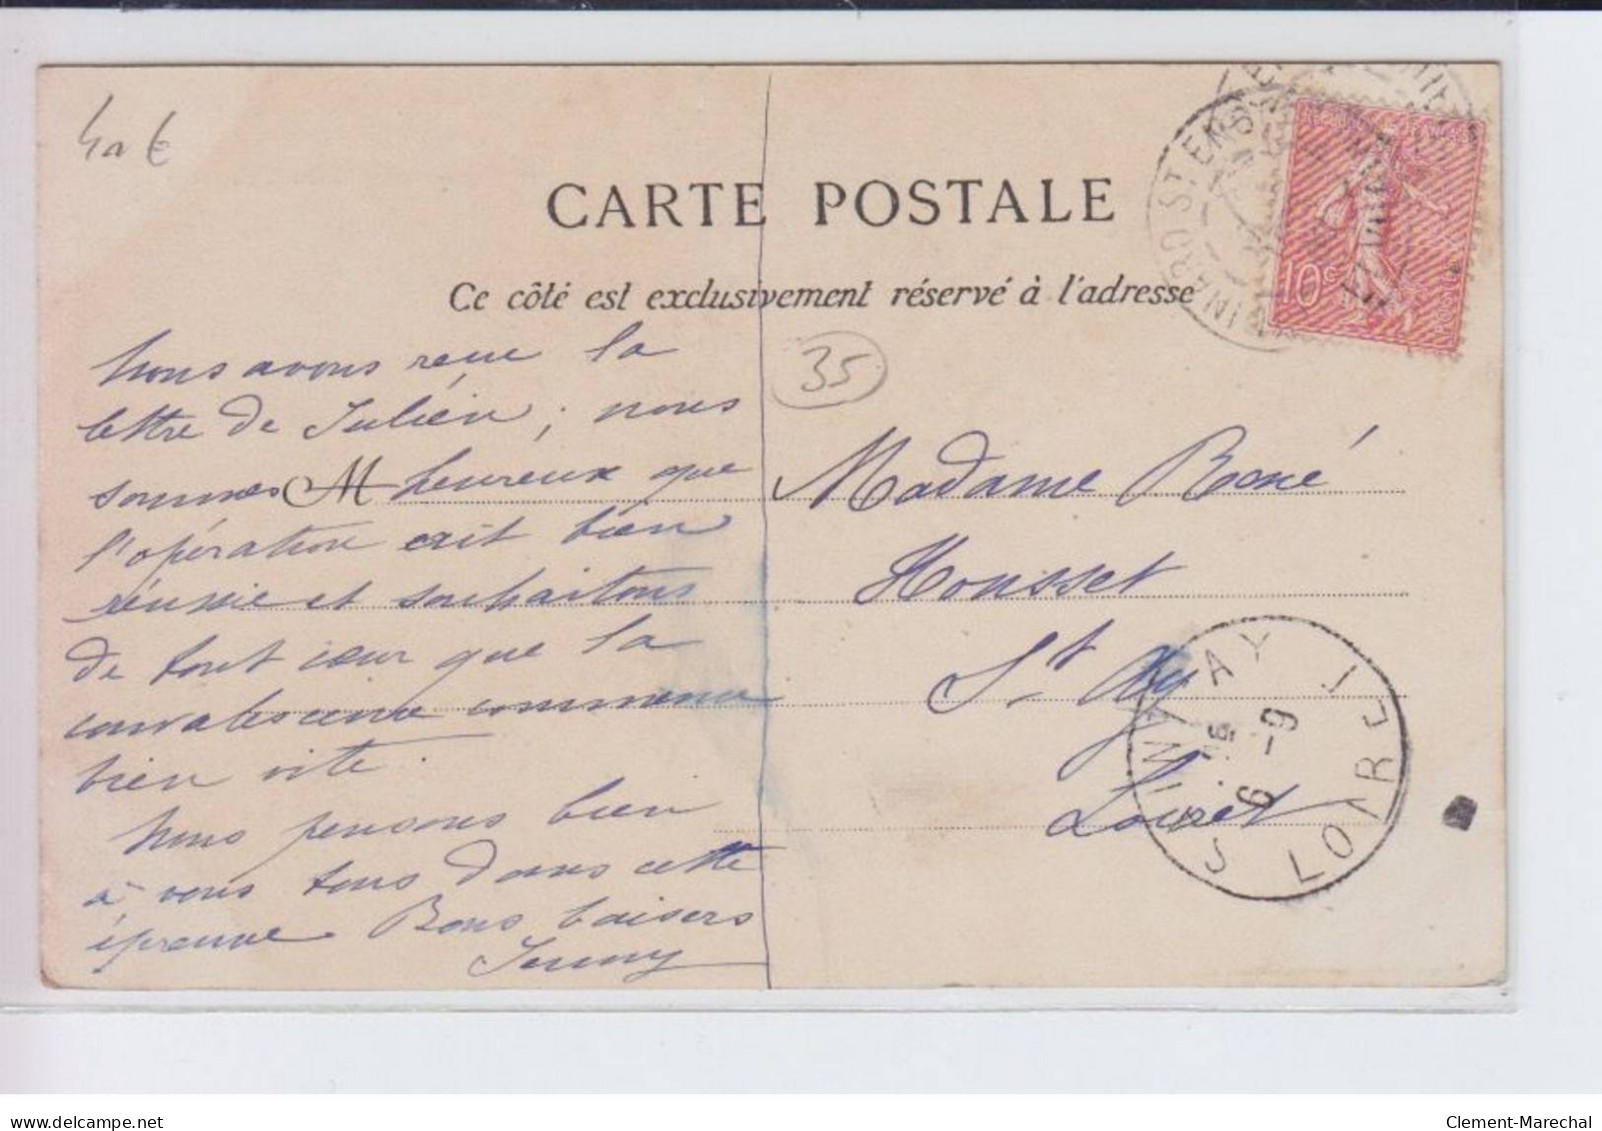 CARTE POSTALE
Ce côté est exclusivement réservé à l'adresse
35
Nous avons reçu la
lettre de Julien ; nous
sommes M heureux que
l'opération ait bien
réussie et souhaitons
de tout cœur que la
convalescence commence
bien vite.
Nous pensons bien
à vous tous dans cette
épreuve. Bons baisers
Jenny
Madame René
Housset
St Ay
Loiret
10c
POSTES
ST AY
6 -9
LOIRET
delcampe.net
Clement-Marechal